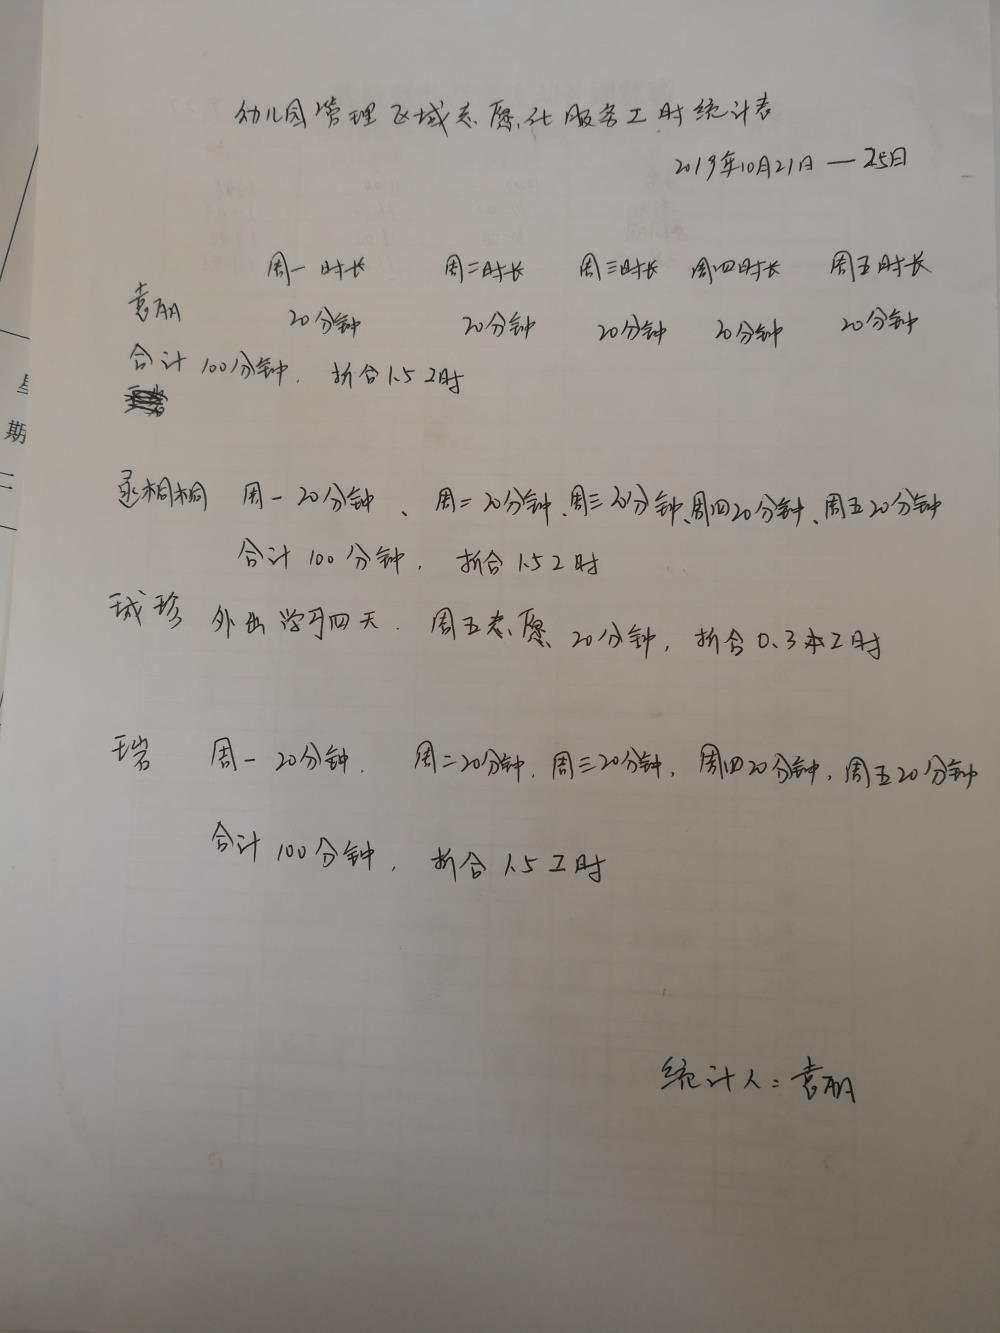 幼儿园管理区域志愿化服务工时统计表
2019年10月21日—25日
周一时长 周二时长 周三时长 周四时长 周五时长
袁丽 20分钟 20分钟 20分钟 20分钟 20分钟
合计100分钟. 折合1.5工时
桐桐 周一20分钟、周二20分钟、周三20分钟、周四20分钟、周五20分钟
合计100分钟, 折合1.5工时
珍 外出学习四天. 周五志愿20分钟, 折合0.3工时
周一20分钟. 周二20分钟, 周三20分钟, 周四20分钟, 周五20分钟
合计100分钟, 折合1.5工时
统计人:袁丽
星
期
二